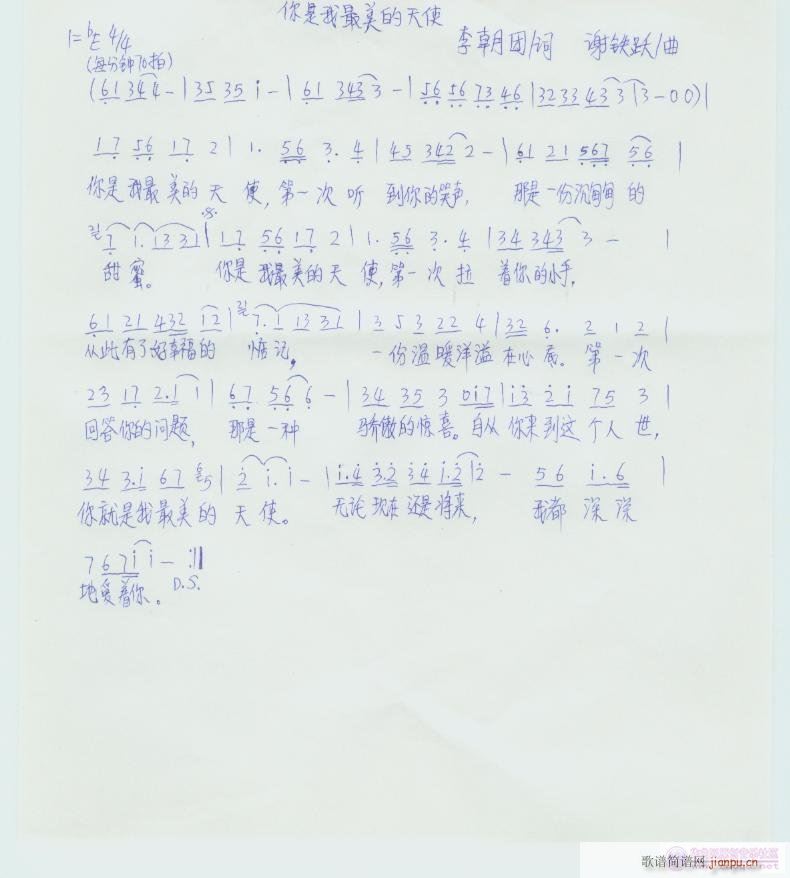 你是我最美的天使
1=♭E 4/4 李朝团/词 谢铁跃/曲
(每分钟70拍)
(61 344-|35 35 i-|61 343 3-|56 56 73 46|32 33 43 3|3-00)|
17 56 17 2|1. 56 3. 4|45 342 2-|61 21 567 56|
你是我最美的天使,第一次听到你的笑声, 那是一份沉甸甸的
7 1. 13 31|17 56 17 2|1. 56 3. 4|34 343 3-|
甜蜜。 你是我最美的天使,第一次拉着你的小手,
61 21 432 12|7. 1 13 31|3 5 3 22 4|32 6. 2 1 2|
从此有了好幸福的惦记。 一份温暖洋溢在心底。第一次
23 17 2.1 1|67 56 6-|34 35 3 0i7|i3 2i 75 3|
回答你的问题, 那是一种 骄傲的惊喜。自从你来到这个人世,
34 3.i 67 5|2 i. i-|i.4 3.2 34 i.2|2- 56 i.6|
你就是我最美的天使。 无论现在还是将来, 我都深深
7 67i i-:‖
地爱着你。 D.S.
歌谱简谱网 jianpu.cn